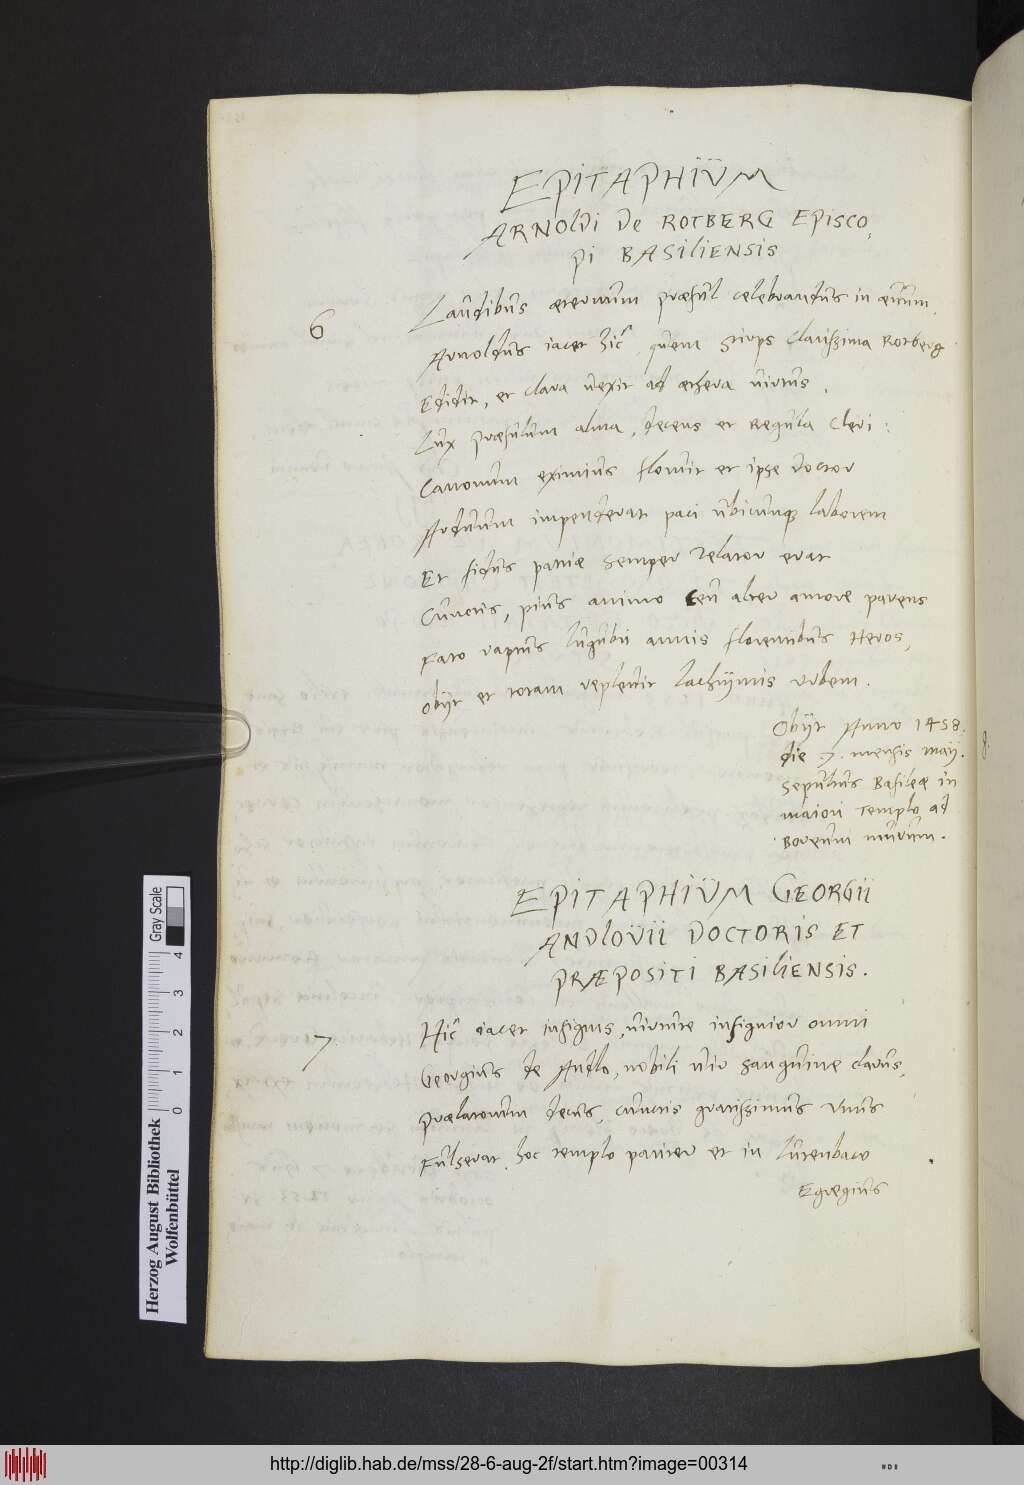 EPITAPHIŬM
ARNOLDI De ROTBERG EPISCO,
pi BASILIENSIS
6
Laŭdibŭs aeternum praesŭl celebrandŭs in aeŭum,
Arnoldŭs iacet hîc, quem stirps clarissima Rotberg
Edidit, et clara ŭexit ad aethera ŭirtŭs.
Lŭx praesŭlum alma, decens et Regŭla cleri:
Canonum eximiŭs floruit et ipse doctor
Ardŭŭm impenderat paci ŭbicunq; laborem
Et fidŭs patriae semper Zelator erat
Cŭnctis, piŭs animo ceŭ alter amore parens
Fato raptŭs lŭgŭbri annis florentibŭs Heros,
Obijt et totam repleŭit lachrijmis urbem.
Obijt Anno 1458.
die 7. mensis maij.
sepŭltŭs Basileae in
maiori templo ad
Boreŭm mŭrŭm.
EPITAPHIŬM GEORGII
ANDLOVII DOCTORIS ET
PRÆPOSITI BASILIENSIS.
7.
Hîc iacet insignis, ŭirtŭte insignior omni
Georgiŭs de Andlo, nobili ŭir sangŭine clarŭs,
praelatorum decŭs, cŭnctis gratissimŭs unŭs
Fŭlserat, hoc templo pariter et in Lŭtenbach
Egregiŭs
Gray Scale
0 1 2 3 4
Herzog August Bibliothek
Wolfenbüttel
http://diglib.hab.de/mss/28-6-aug-2f/start.htm?image=00314